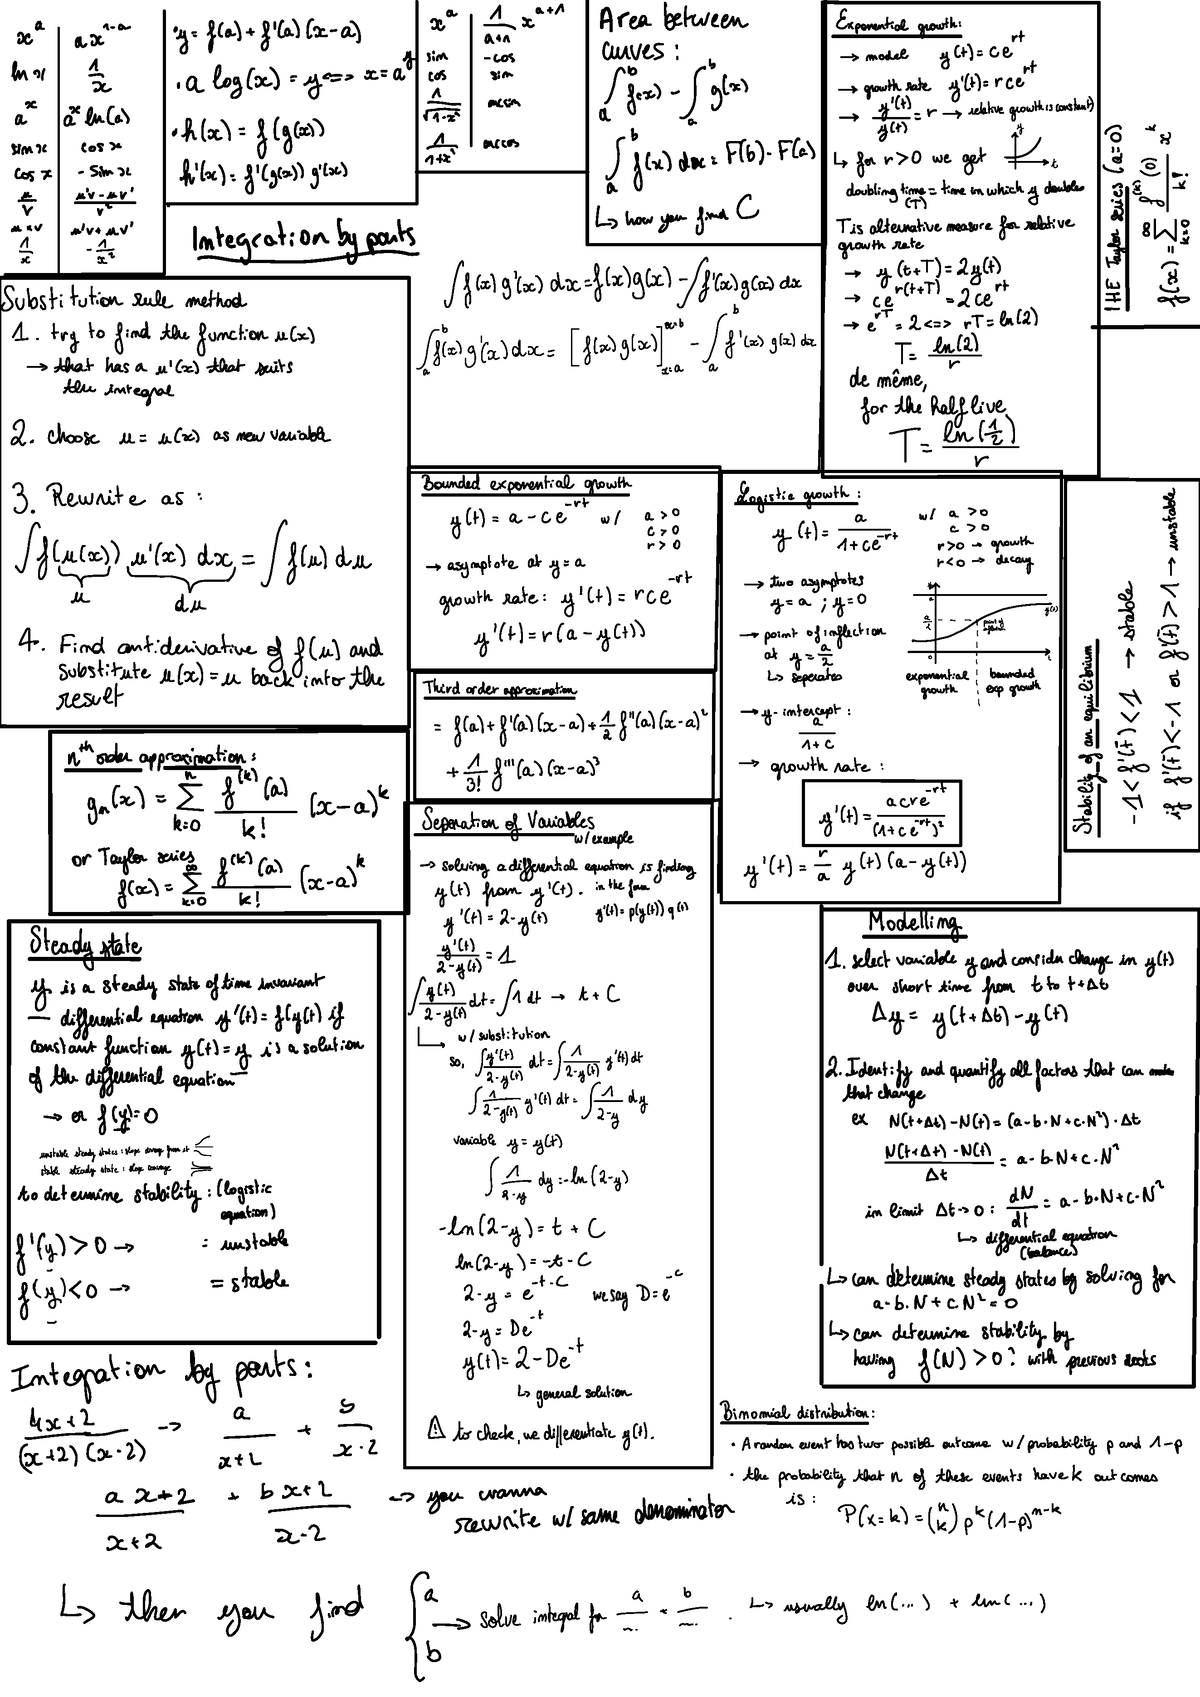 x^a | a x^{1-a}
ln x | 1/x
a^x | a^x ln(a)
sin x | cos x
cos x | - sin x
u/v | u'v - uv' / v²
u × v | u'v + uv'
1/x | - 1/x²
• y = f(a) + f'(a) (x-a)
• a log(x) = y <=> x = a^y
• h(x) = f(g(x))
h'(x) = f'(g(x)) g'(x)
x^a | 1/(a+1) x^{a+1}
sin | -cos
cos | sin
1/√(1-x²) | arcsin
1/(1+x²) | arccos
Area between
curves :
∫_a^b f(x) - ∫_a^b g(x)
∫_a^b f(x) dx = F(b) - F(a)
↳ how you find C
Exponential growth:
→ model y(t) = ce^{rt}
→ growth rate y'(t) = rce^{rt}
→ y'(t)/y(t) = r → relative growth is constant)
↳ for r>0 we get
y
t
doubling time = time in which y doubles
(T)
T is alternative measure for relative
growth rate
→ y(t+T) = 2y(t)
→ ce^{r(t+T)} = 2ce^{rt}
→ e^{rT} = 2 <=> rT = ln(2)
T = ln(2)/r
de même,
for the half live
T = ln(1/2)/r
THE Taylor series (a=0)
f(x) = Σ_{k=0}^∞ f^{(k)}(0)/k! x^k
Integration by parts
∫ f(x) g'(x) dx = f(x)g(x) - ∫ f'(x)g(x) dx
∫_a^b f(x) g'(x) dx = [f(x)g(x)]_{x=a}^{x=b} - ∫_a^b f'(x) g(x) dx
Substitution rule method
1. try to find the function u(x)
→ that has a u'(x) that suits
the integral
2. choose u = u(x) as new variable
3. Rewrite as :
∫ f(u(x)) u'(x) dx = ∫ f(u) du
u
du
4. Find antiderivative of f(u) and
substitute u(x) = u back into the
result
Bounded exponential growth
y(t) = a - ce^{-rt} w/ a > 0
c > 0
r > 0
→ asymptote at y = a
growth rate : y'(t) = rce^{-rt}
y'(t) = r(a - y(t))
Third order approximation
= f(a) + f'(a) (x-a) + 1/2 f''(a) (x-a)²
+ 1/3! f'''(a) (x-a)³
Logistic growth :
y(t) = a/(1+ce^{-rt})
w/ a > 0
c > 0
r>0 → growth
r<0 → decay
→ two asymptotes
y = a ; y = 0
→ point of inflection
at y = a/2
↳ seperates
a
a/2
point of
y(t)
t
exponential
growth
bounded
exp growth
→ y-intercept :
a/(1+c)
→ growth rate :
y'(t) = acre^{-rt}/(1+ce^{-rt})²
y'(t) = r/a y(t) (a - y(t))
Stability of an equilibrium
-1 < f'(t̄) < 1 → stable
if f'(t̄) < -1 or f'(t̄) > 1 → unstable
n^{th} order approximation :
g_n(x) = Σ_{k=0}^n f^{(k)}(a)/k! (x-a)^k
or Taylor series
f(x) = Σ_{k=0}^∞ f^{(k)}(a)/k! (x-a)^k
Separation of Variables
w/ example
→ solving a differential equation is finding
y(t) from y'(t). in the form
y'(t) = 2 - y(t) y'(t) = p(y(t)) q(t)
y'(t)/(2-y(t)) = 1
∫ y'(t)/(2-y(t)) dt = ∫ 1 dt → t + C
↳ w/ substitution
so, ∫ y'(t)/(2-y(t)) dt = ∫ 1/(2-y(t)) y'(t) dt
∫ 1/(2-y(t)) y'(t) dt = ∫ 1/(2-y) dy
variable y = y(t)
∫ 1/(2-y) dy = -ln(2-y)
-ln(2-y) = t + C
ln(2-y) = -t - C
2-y = e^{-t-C} we say D = e^{-C}
2-y = De^{-t}
y(t) = 2 - De^{-t}
↳ general solution
⚠ to check, we differentiate y(t).
Steady state
y is a steady state of time invariant
differential equation y'(t) = f(y(t) if
constant function y(t) = y is a solution
of the differential equation
→ or f(y) = 0
unstable steady states : slope away from it
stable steady state : slope converge
to determine stability : (logistic
equation)
f'(y) > 0 → = unstable
f(y) < 0 → = stable
Modelling
1. select variable y and consider change in y(t)
over short time from t to t+Δt
Δy = y(t+Δt) - y(t)
2. Identify and quantify all factors that can make
that change
ex N(t+Δt) - N(t) = (a - b·N + c·N²) · Δt
N(t+Δt) - N(t) / Δt = a - b·N + c·N²
in limit Δt → 0 : dN/dt = a - b·N + c·N²
↳ differential equation
(balance)
↳ can determine steady states by solving for
a - b·N + c·N² = 0
↳ can determine stability by
having f(N) > 0 ? with previous roots
Integration by parts :
4x+2/(x+2)(x-2) → a/(x+2) + b/(x-2)
a x+2/(x+2) + b x+2/(x-2) → you wanna
rewrite w/ same denominator
↳ then you find { a
b
→ solve integral for a/... + b/... . ↳ usually ln(...) + ln(...)
Binomial distribution :
• A random event has two possible outcome w/ probability p and 1-p
• the probability that n of these events have k outcomes
is :
P(x=k) = (n k) p^k (1-p)^{n-k}